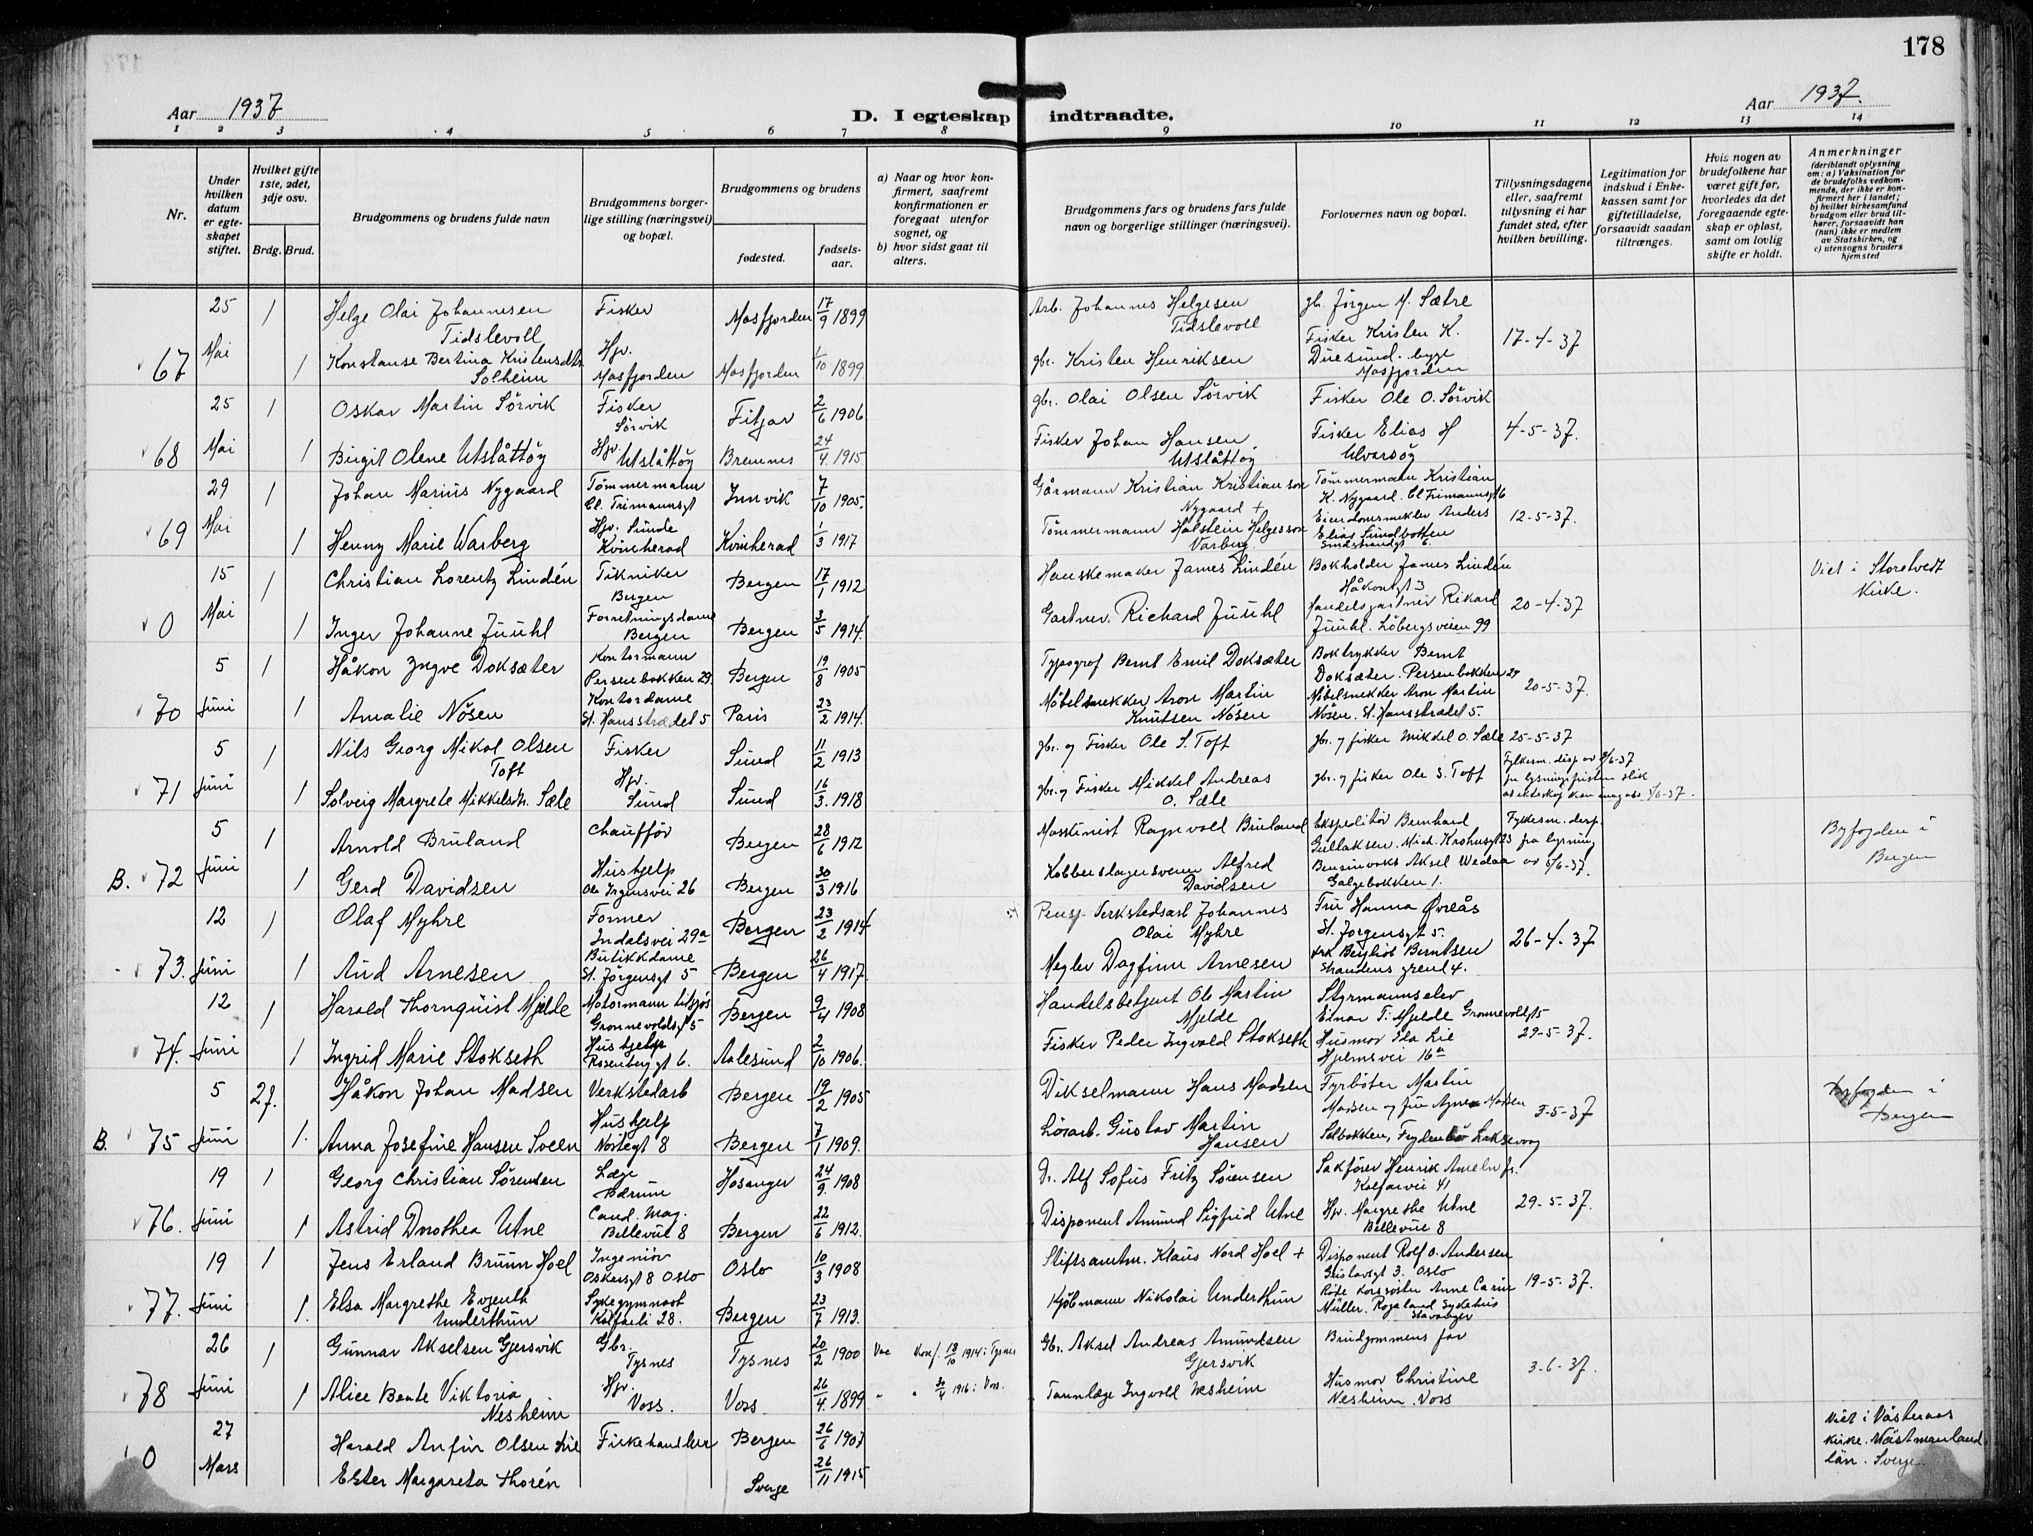 178
Aar 1937
D. I egteskap indtraadte.
Aar 1937.
1 2 3 4 5 6 7 8 9 10 11 12 13 14
Nr.
Under hvilken datum er egteskapet stiftet.
Hvilket gifte 1ste, 2det, 3dje osv.
Brdg. Brud.
Brudgommens og brudens fulde navn
Brudgommens borgerlige stilling (næringsvei) og bopæl.
Brudgommens og brudens
fødested.
fødselsaar.
a) Naar og hvor konfirmert, saafremt konfirmationen er foregaat utenfor sognet, og
b) hvor sidst gaat til alters.
Brudgommens fars og brudens fars fulde navn og borgerlige stillinger (næringsvei).
Forlovernes navn og bopæl.
Tillysningsdagene eller, saafremt tillysning ei har fundet sted, efter hvilken bevilling.
Legitimation for indskud i Enkekassen samt for giftetilladelse, forsaavidt saadan tiltrænges.
Hvis nogen av brudefolkene har været gift før, hvorledes da det foregaaende egteskap er opløst, samt om lovlig skifte er holdt.
Anmerkninger (deriblandt oplysning om: a) Vaksination for de brudefolks vedkommende, der ikke er konfirmert her i landet; b) hvilket kirkesamfund brudgom eller brud tilhører, forsaavidt han (hun) ikke er medlem av Statskirken, og c) utensogns bruders hjemsted
25 1 Helge Olai Johannesen Tidslevoll Fisker Masfjorden 17/9 1899 Arb. Johannes Helgesen Tidslevoll gb. Jørgen M. Sætre
67 Mai 1 Konstanse Bertina Kristensdtr. Solheim Hjv. Masfjorden Masfjorden 1/10 1899 gbr. Kristen Henriksen Fisker Kristen K. Duesund. begge Masfjorden 17-4-37
25 1 Oskar Martin Sørvik Fisker Sørvik Fitjar 2/6 1906 gbr. Olai Olsen Sørvik Fisker Ole O. Sørvik
68 Mai 1 Birgit Olene Utslåttøy Hjv Utslåttøy Bremnes 24/4 1915 Fisker Johan Hansen Utslåttøy Fisker Elias H Ulvarsøy 4-5-37.
29 1 Johan Marius Nygaard Tømmermann Cl. Frimannsgt Innvik 7/10 1905. Gårmann Kristian Kristianson Nygaard + Tømmermann Kristian K. Nygaard. Cl Frimannsgt 6
69 Mai 1 Henny Marie Warberg Hjv. Sunde Kvinherad Kvinherad 1/3 1917 Tømmermann Halstein Helgesson Varberg. Eiendomsmekler Anders Elias Sundbotten 12-5-37.
15 1 Christian Lorentz Lindén Tekniker Bergen Bergen 17/1 1912 Hanskemaker James Lindén Bokholder James Lindén Håkonsgt 3 Viet i Storetvedt Kirke.
0 Mai 1 Inger Johanne Juuhl Forretningsdame Bergen Bergen 3/5 1914. Gartner. Richard Juuhl Handelsgartner Rikard Juuhl. Løbergsveien 99 20-4-37
5 1 Håkon Yngve Doksæter Kontormann Persenbakken 29. Bergen 19/8 1905 Typograf Bernt Emil Doksæter Boktrykker Bernt Doksæter. Persenbakken 29
70 Juni 1 Amalie Nøsen Kontordame St. Hansstrædet 5 Paris 23/2 1914. Møbelsnekker Aron Martin Knutsen Nøsen Møbelsnekker Aron Martin Nøsen. St. Hansstrædet 5. 20-5-37.
5 1 Nils Georg Mikal Olsen Toft Fisker Sund 11/2 1913 gbr. og Fisker Ole S. Toft gbr. og fisker Mikkel O. Sæle 25-5-37
71 Juni 1 Solveig Margrete Mikkelsdtr. Sæle Hjv. Sund Sund 16/3. 1918 gbr. og Fisker Mikkel Andreas O. Sæle gbr. og fisker Ole S. Toft Fylkesm. disp av 2/6-37 fra lysningsfristen slik at ekteskap kan inngaas 5/6-37.
5 1 Arnold Bruland Chauffør Bergen 28/6 1912 Maskinist Ragnvald Bruland Ekspeditør Bernhard Gullaksen. Mich. Krohnsgt 35 Fylkesm. disp. fra lysning av 5/6-37. Byfogden i Bergen
B. 72 Juni 1 Gerd Davidsen Hushjelp Ole Irgensvei 26 Bergen 30/3 1916 Kobberslagersvenn Alfred Davidsen Bensinvakt Aksel Wedaa Galgebakken 1.
12 1 Olaf Myhre Former Indalsvei 29a Bergen 23/2 1914 Pensj. Verkstedsarb Johannes Olai Myhre Fru Hanna Øvreås St. Jørgensgt 5.
73. Juni 1 Aud Arnesen Butikkdame St. Jørgensgt 5 Bergen 26/4 1917. Megler Dagfinn Arnesen frk Bergliot Berntsen Strandens grend 4. 26-4-37
12 1 Harald Thornquist Mjelde Motormann tilsjøs Grønnevoldsgt 5 Bergen 9/4 1908 Handelsbetjent Ole Martin Mjelde Styrmannselev Einar T. Mjelde Grønnevoldgt 5
74. Juni 1 Ingrid Marie Stokseth Hushjelp Rosenberggt 6. Aalesund 2/10 1906. Fisker Peder Ingvald Stokseth Husmor Ida Lie Hjelmsvei 16a 29-5-37.
5 2g. Håkon Johan Madsen Verkstedarb Bergen 19/2 1905 Dikselmann Hans Madsen Fyrbøter Martin Madsen og fru Agnes Madsen Byfogden i Bergen
B. 75 Juni 1. Anna Josefine Hansen Sveen Hushjelp Nostegt 8 Bergen 7/1 1909. Løsarb. Gustav Martin Hansen Solbakken, Frydenbø Laksevåg 5-5-37
19 1 Georg Christian Sørensen Læge Bærum Hosanger 24/9. 1908 Dr. Alf Sofus Fritz Sørensen Sakfører Henrik Ameln jr. Kalfarvei 41
76. Juni 1 Astrid Dorothea Utne Cand. Mag. Bellevue 8 Bergen 22/6 1912. Disponent Amund Sigfrid Utne Hjv. Margrethe Utne Bellevue 8 29-5-37.
19 1 Jens Erland Bruun Hoel Ingeniør Oskarsgt 8 Oslo Oslo 10/3 1908 Stiftsamtm. Klaus Nord Hoel + Disponent Rolf O. Andersen Gustavsgt 3. Oslo
77. Juni 1. Elsa Margrethe Eugenth Underthun Sykegymnast Kalfarli 28. Bergen 23/7 1913. Kjøbmann Nikolai Underthun Røde Korssøster Anne Carin Müller. Rogaland Sykehus Stavanger 19-5-37.
26 1 Gunnar Akselsen Gjersvik Gbr. Tysnes Tysnes 20/2 1900 Vac Konf. 18/10 1914 i Tysnes Gbr. Aksel Andreas Amundsen Gjersvik Brudgommens far
78 Juni 1 Alice Beate Viktoria Nesheim Hjv. Voss. Voss 26/4. 1899 " " 30/4 1916 i Voss. Tannlæge Ingvald Nesheim Husmor Christine Nesheim. Voss 3-6-37.
27 Harald Anfin Olsen Lie Fiskehandler Bergen 26/6 1907 Viet i Västeraas kirke. Västmanland län. Sverge.
0 Mars Ester Margareta Thorén Sverge 26/11 1915